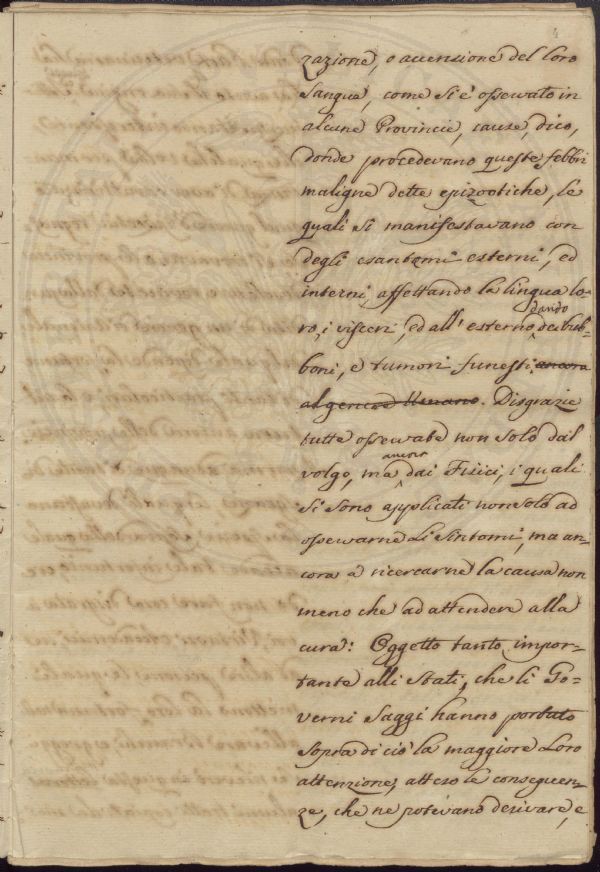 4
zazione, o accensione del loro
Sangue, come si è osservato in
alcune Provincie, cause, dico,
donde procedevano queste febbri
maligne dette epizootiche, le
quali si manifestavano con
degli esantemi esterni, ed
interni, affettando la lingua lo-
ro, i visceri, ed all' esterno, dando de bub-
boni, e tumori funesti ancora
al genere Umano. Disgrazie
tutte osservate non solo dal
volgo, ma ancora dai Fisici, i quali
si sono applicati non solo ad
osservarne li Sintomi, ma an-
cora a ricercarne la causa non
meno che ad attendere alla
cura: Oggetto tanto impor-
tante alli Stati, che li Go-
verni Saggi hanno portato
sopra di ciò la maggiore Loro
attenzione, atteso le conseguen-
ze, che ne potevano derivare, e